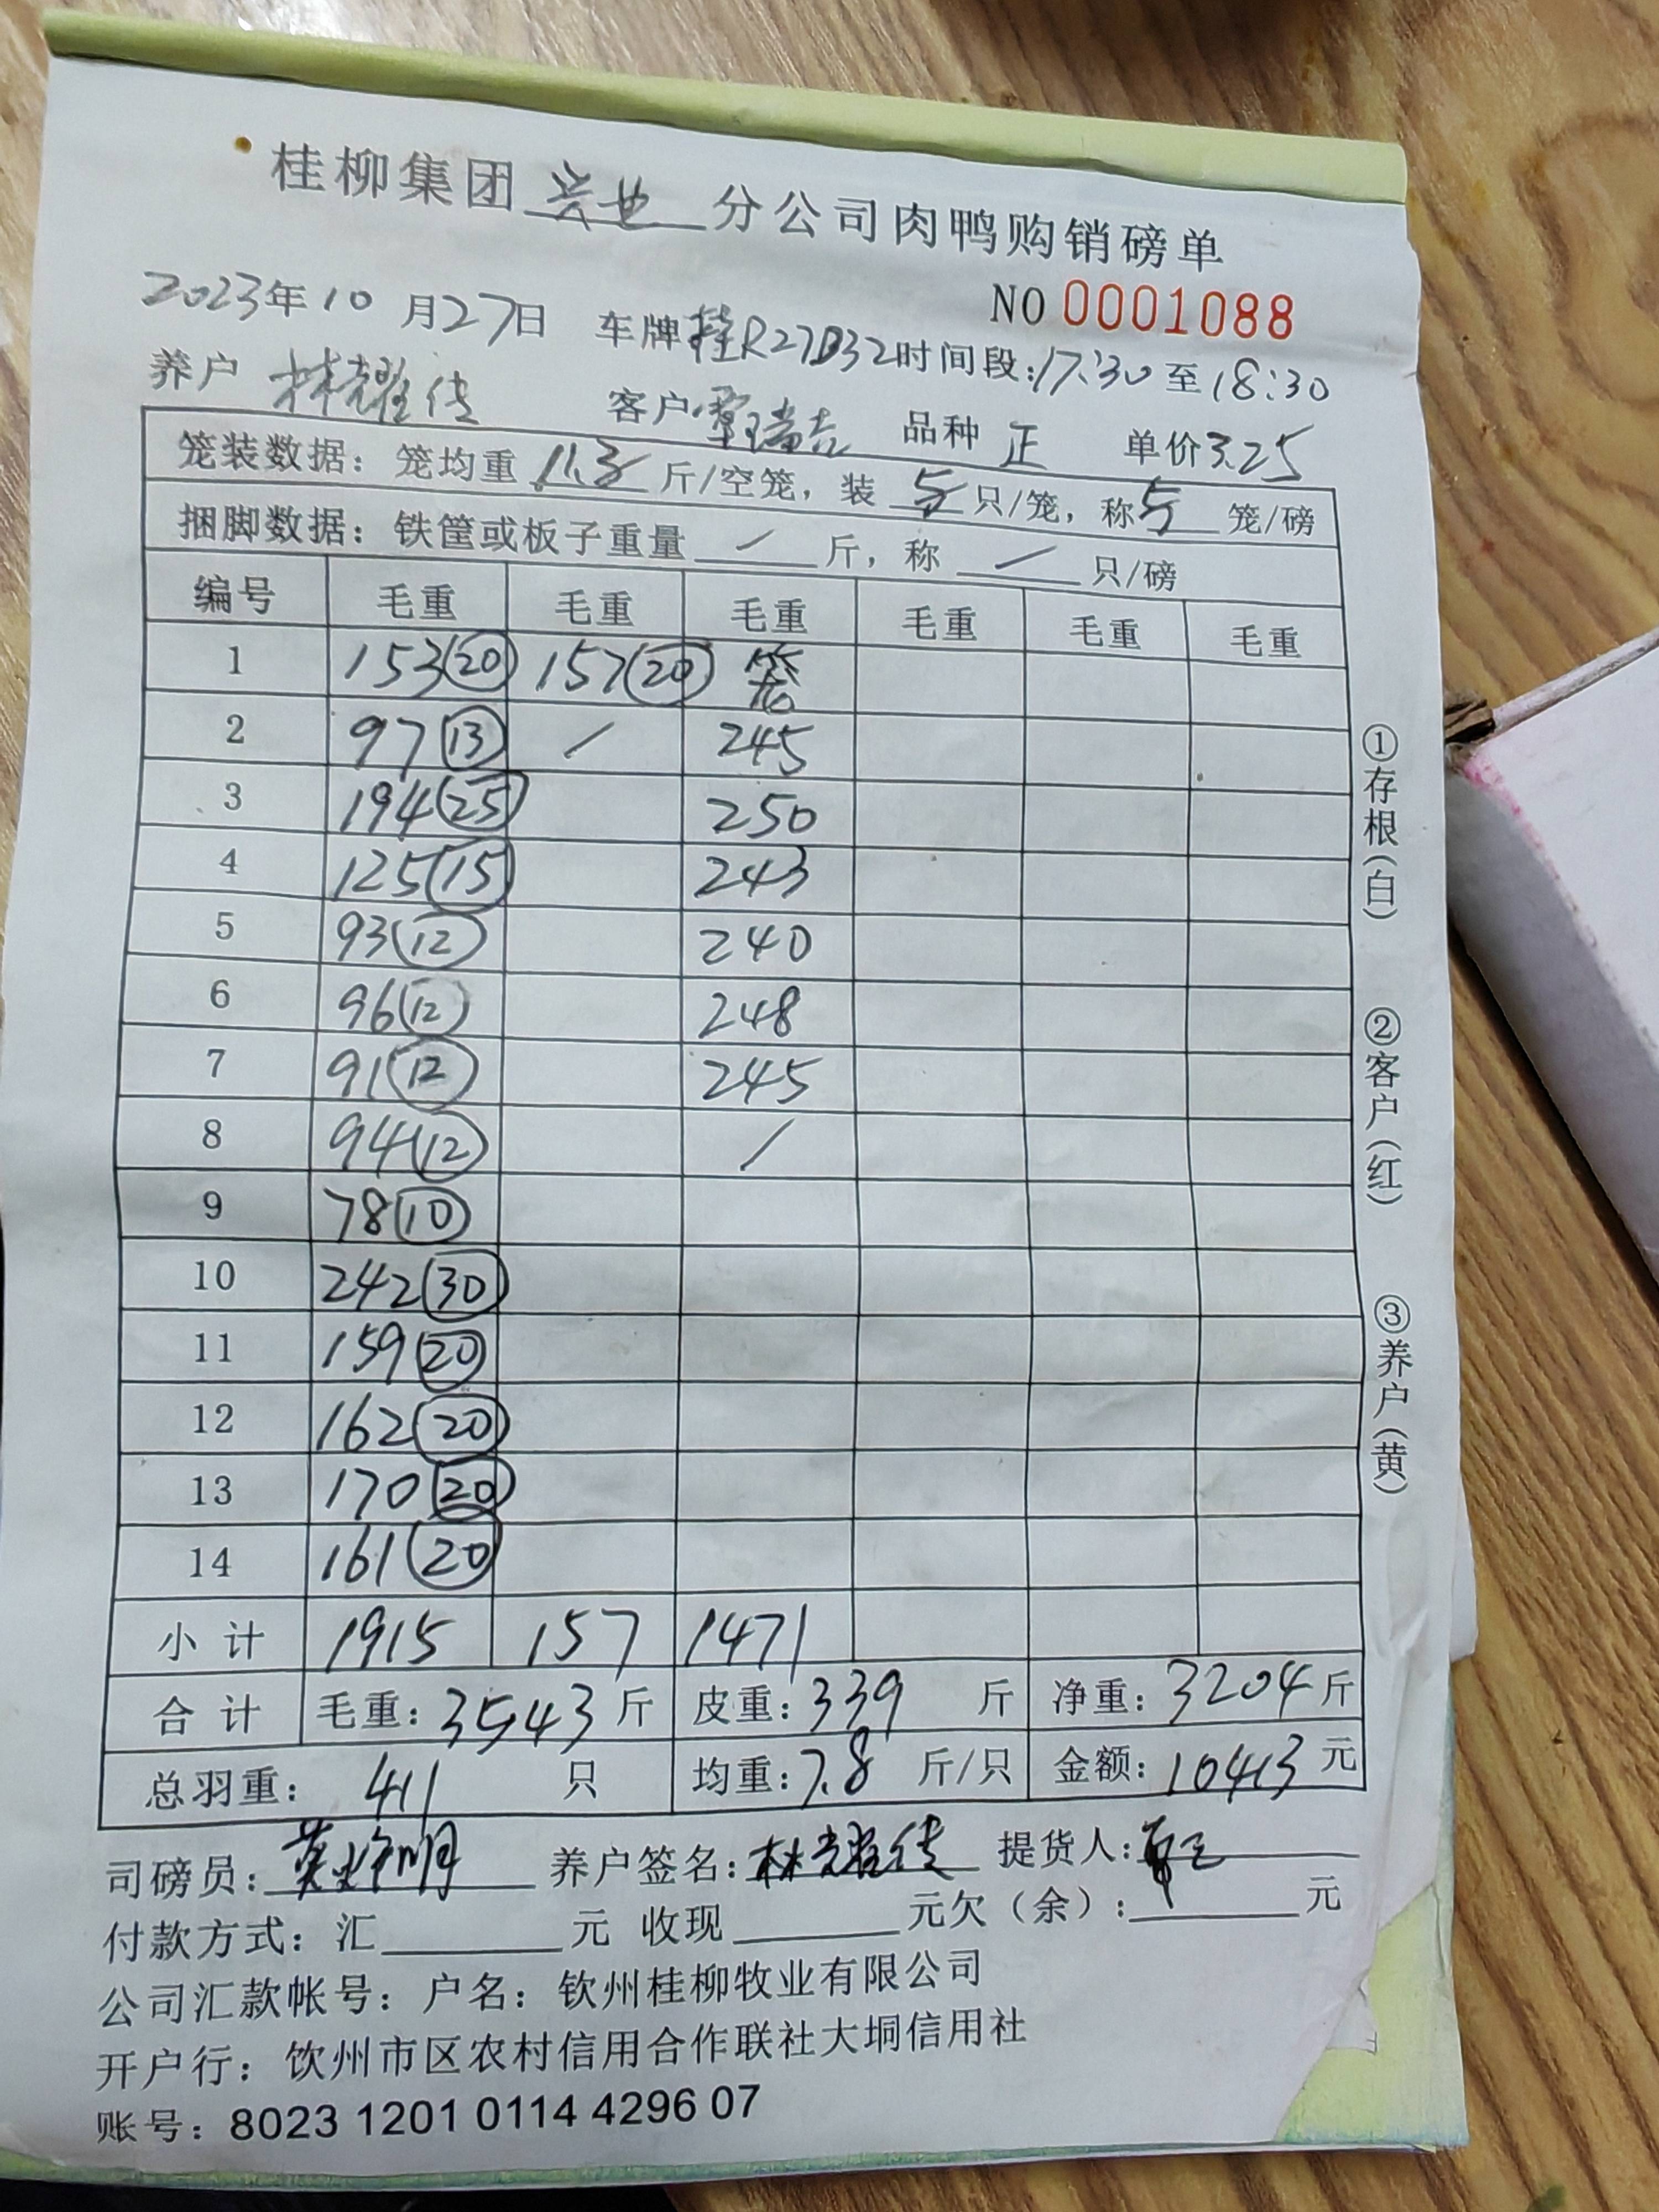 桂柳集团 兴业 分公司肉鸭购销磅单
NO 0001088
2023年10月27日 车牌桂R27D32时间段:17:30至18:30
养户 林耀传 客户 覃瑞吉 品种 正 单价3.25
笼装数据：笼均重 11.3 斤/空笼，装 5 只/笼，称 5 笼/磅
捆脚数据：铁筐或板子重量 / 斤，称 / 只/磅
编号 毛重 毛重 毛重 毛重 毛重 毛重
1 153(20) 157(20) 笼
2 97(13) / 245
3 194(25) 250
4 125(15) 243
5 93(12) 240
6 96(12) 248
7 91(12) 245
8 94(12) /
9 78(10)
10 242(30)
11 159(20)
12 162(20)
13 170(20)
14 161(20)
小计 1915 157 1471
合计 毛重：3543斤 皮重：339 斤 净重：3204斤
总羽重： 411 只 均重：7.8 斤/只 金额：10413元
司磅员： 养户签名：林耀传 提货人：
付款方式：汇 元 收现 元欠（余）： 元
公司汇款帐号：户名：钦州桂柳牧业有限公司
开户行：饮州市区农村信用合作联社大垌信用社
账号：8023 1201 0114 4296 07
①存根(白)
②客户(红)
③养户(黄)